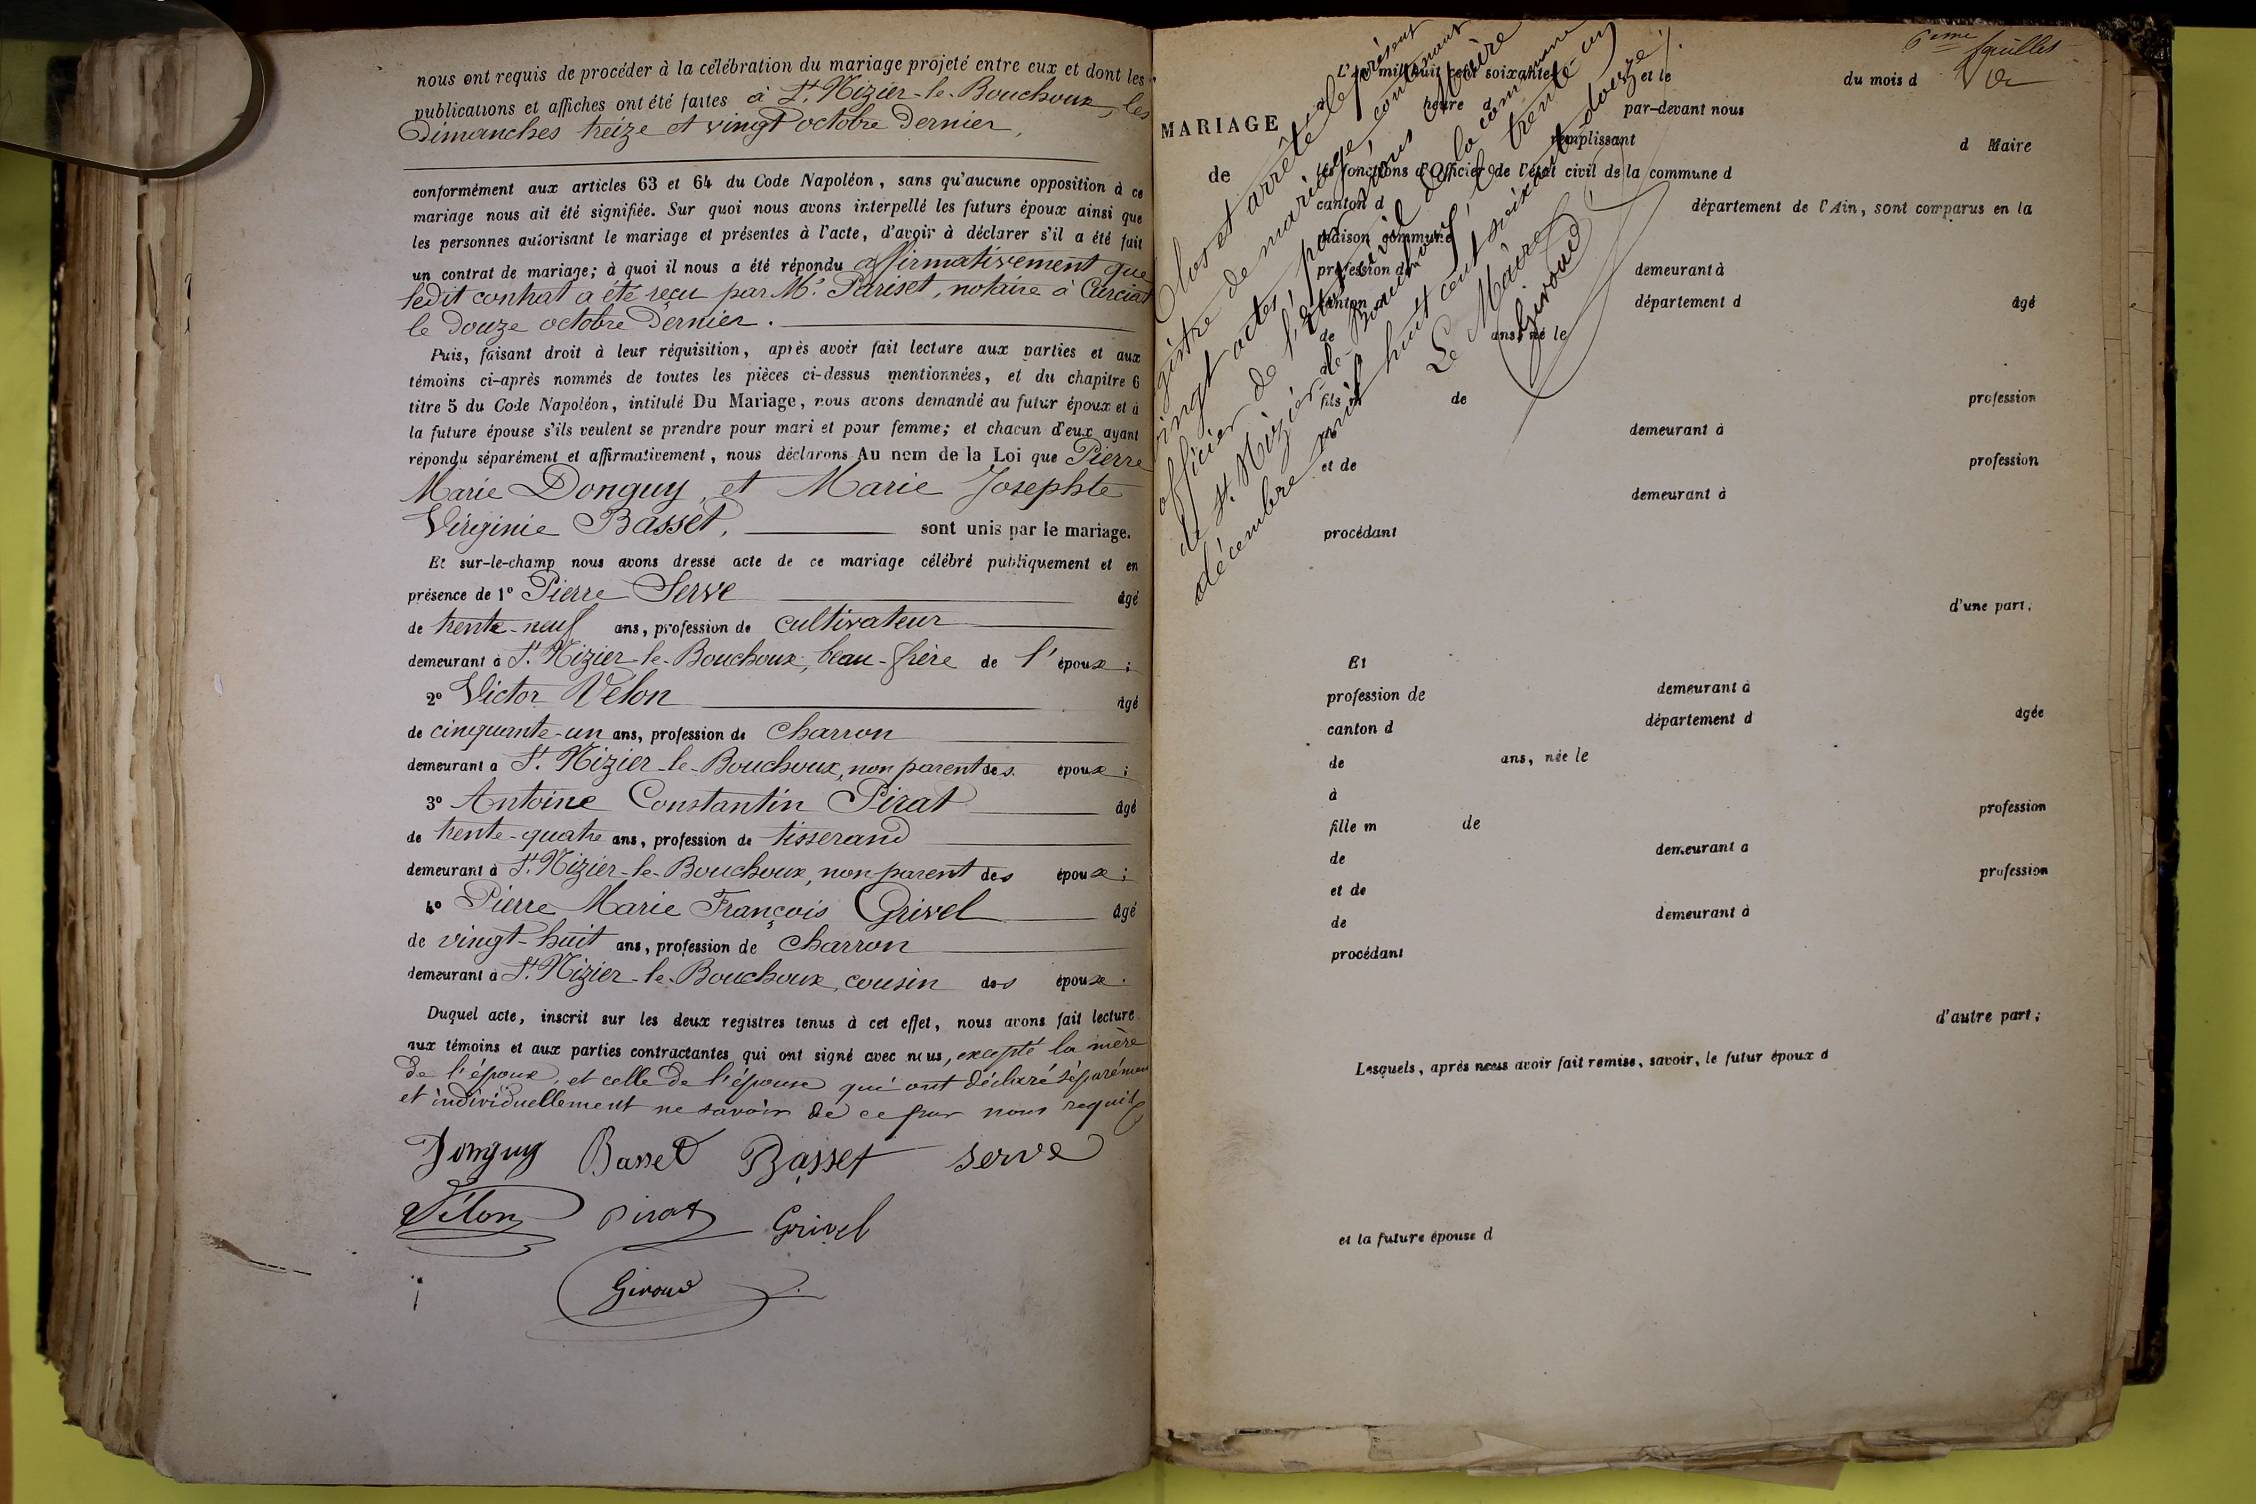 nous ont requis de procéder à la célébration du mariage projeté entre eux et dont les
publications et affiches ont été faites à St. Nizier-le-Bouchoux, les
Dimanches treize et vingt octobre dernier,
conformément aux articles 63 et 64 du Code Napoléon, sans qu'aucune opposition à ce
mariage nous ait été signifiée. Sur quoi nous avons interpellé les futurs époux ainsi que
les personnes autorisant le mariage et présentes à l'acte, d'avoir à déclarer s'il a été fait
un contrat de mariage; à quoi il nous a été répondu affirmativement que
ledit contrat a été reçu par Me. Pariset, notaire à Curciat
le douze octobre dernier.
Puis, faisant droit à leur réquisition, après avoir fait lecture aux parties et aux
témoins ci-après nommés de toutes les pièces ci-dessus mentionnées, et du chapitre 6
titre 5 du Code Napoléon, intitulé Du Mariage, nous avons demandé au futur époux et à
la future épouse s'ils veulent se prendre pour mari et pour femme; et chacun d'eux ayant
répondu séparément et affirmativement, nous déclarons Au nom de la Loi que Pierre
Marie Donguy, et Marie Josephte
Virginie Basset, sont unis par le mariage.
Et sur-le-champ nous avons dressé acte de ce mariage célébré publiquement et en
présence de 1° Pierre Serve âgé
de trente-neuf ans, profession de cultivateur
demeurant à St. Nizier-le-Bouchoux, beau-frère de l'époux;
2° Victor Velon âgé
de cinquante-un ans, profession de charron
demeurant à St. Nizier-le-Bouchoux, non parent des époux;
3° Antoine Constantin Pirat âgé
de trente-quatre ans, profession de tisserand
demeurant à St. Nizier-le-Bouchoux, non parent des époux;
4° Pierre Marie François Grivel âgé
de vingt-huit ans, profession de charron
demeurant à St. Nizier-le-Bouchoux, cousin des époux.
Duquel acte, inscrit sur les deux registres tenus à cet effet, nous avons fait lecture
aux témoins et aux parties contractantes qui ont signé avec nous, excepté la mère
de l'époux, et celle de l'épouse qui ont déclaré séparément
et individuellement ne savoir de ce par nous requis
Donguy Basset Basset Serve
Vélon Pirat Grivel
Giroud
6eme feuillet
L'an mil huit cent soixante et le du mois d
heure d par-devant nous
MARIAGE
remplissant d Maire
de
les fonctions d'Officier de l'état civil de la commune d
canton d département de l'Ain, sont comparus en la
maison commune
profession d demeurant à
canton département d âgé
de ans, né le
fils m de profession
demeurant à
et de profession
demeurant à
procédant
d'une part;
Et
profession de demeurant à
canton d département d âgée
de ans, née le
à
fille m de profession
de demeurant à
et de profession
de demeurant à
procédant
d'autre part;
Lesquels, après nous avoir fait remise, savoir, le futur époux d
et la future épouse d
Clos et arrêté le présent
gistre de mariage, contenant
vingt actes, par nous Maire
officier de l'état civil de la commune
de St. Nizier-le-Bouchoux, le trente-un
décembre mil huit cent soixante-douze.
Le Maire
Giroud